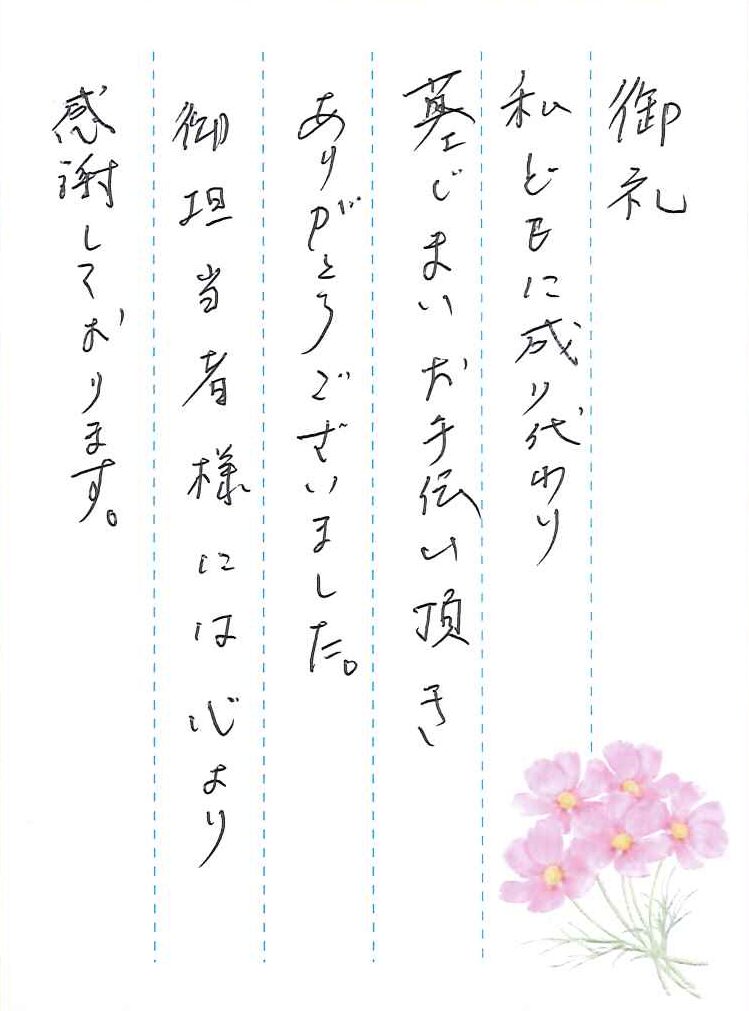 御礼
私どもに成り代わり
墓じまいお手伝い頂き
ありがとうございました。
御担当者様には心より
感謝しております。